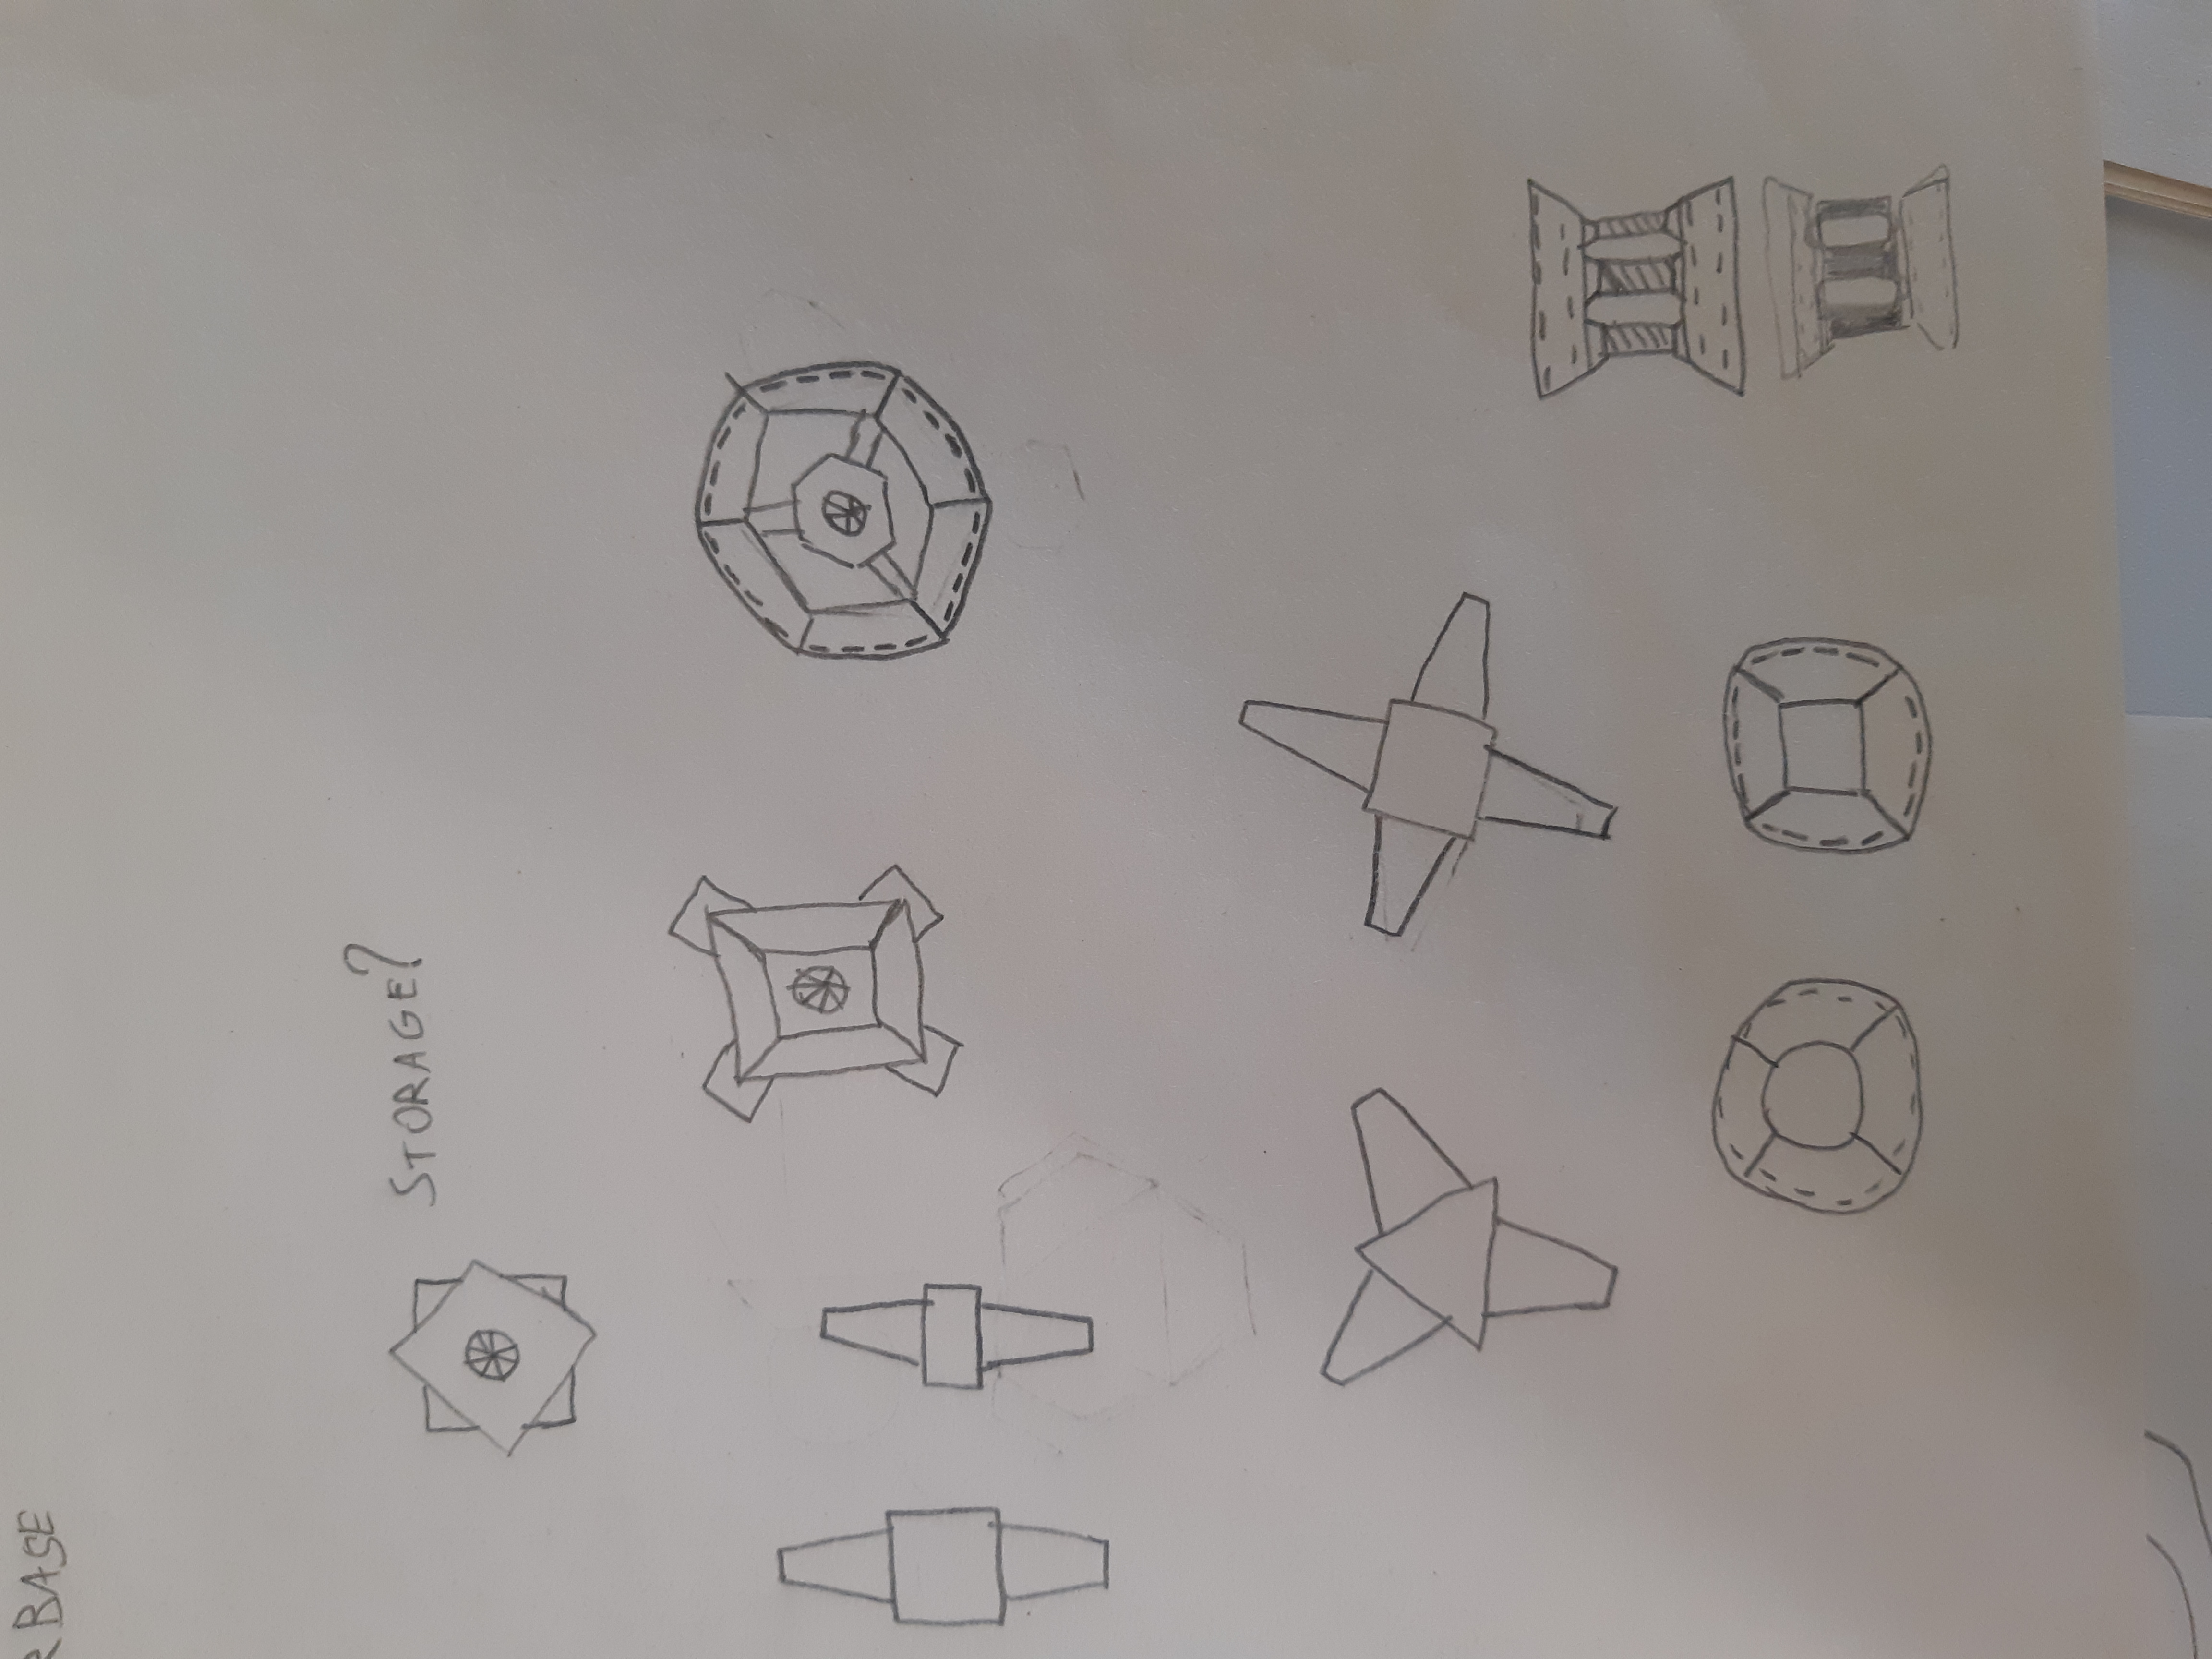 R BASE
STORAGE?